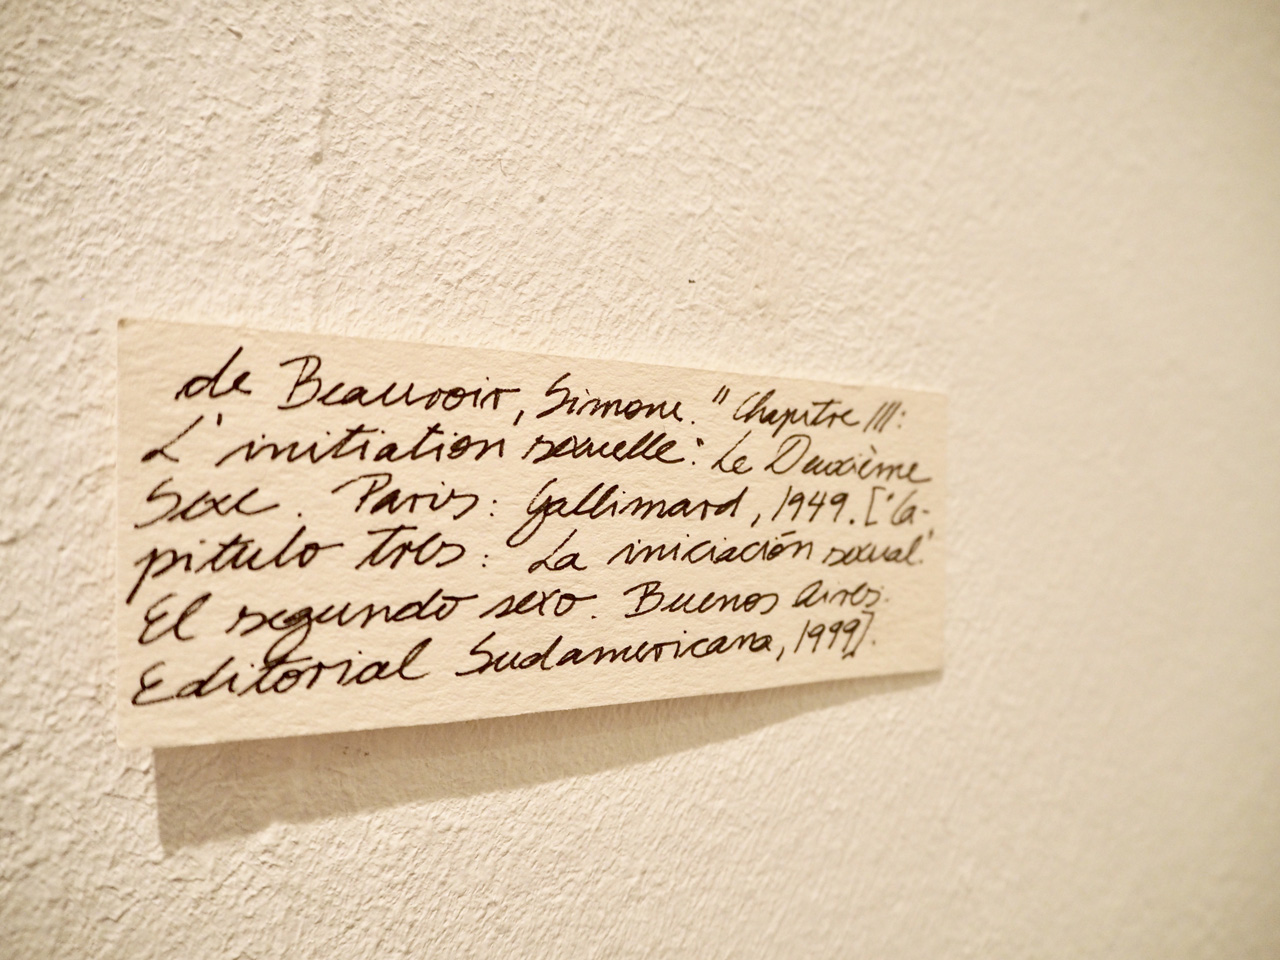 de Beauvoir, Simone. "Chapitre III:
L'initiation sexuelle". Le Deuxième
Sexe. Paris: Gallimard, 1949. ["Ca-
pitulo tres: La iniciación sexual".
El segundo sexo. Buenos Aires:
Editorial Sudamericana, 1999].